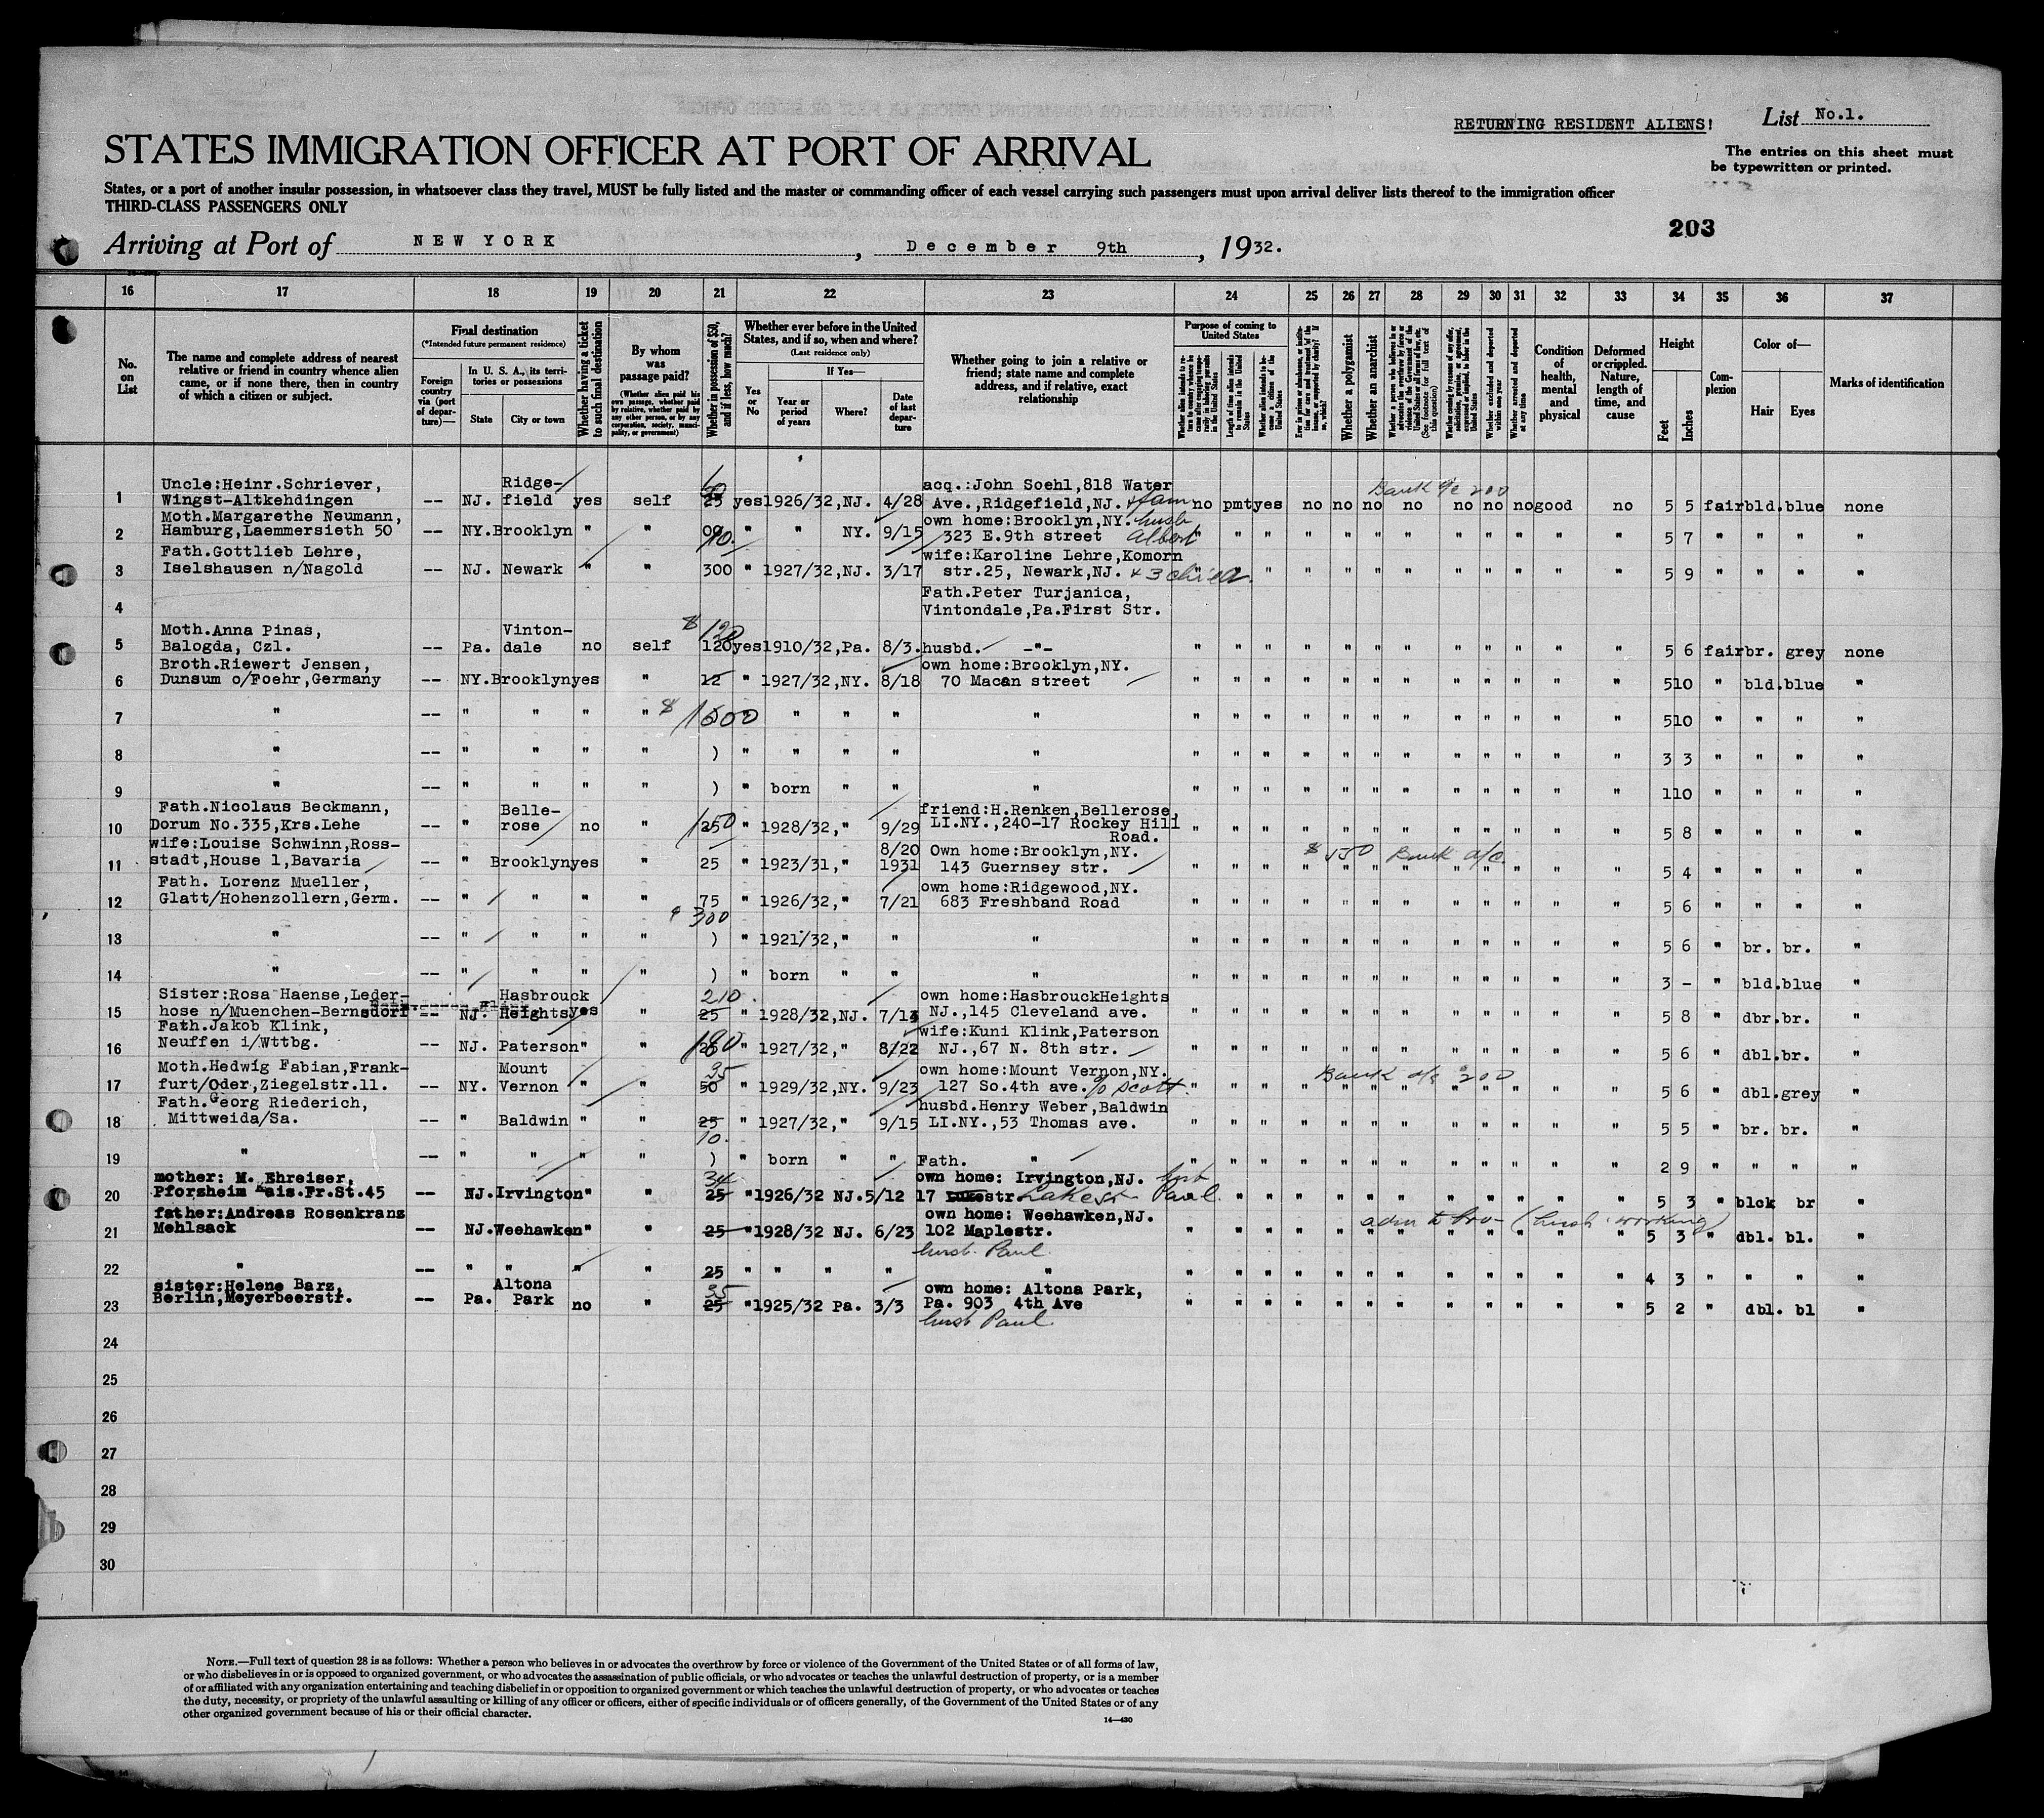 RETURNING RESIDENT ALIENS!
List No.1.
STATES IMMIGRATION OFFICER AT PORT OF ARRIVAL
The entries on this sheet must
be typewritten or printed.
States, or a port of another insular possession, in whatsoever class they travel, MUST be fully listed and the master or commanding officer of each vessel carrying such passengers must upon arrival deliver lists thereof to the immigration officer
THIRD-CLASS PASSENGERS ONLY
203
Arriving at Port of NEW YORK, December 9th, 1932.
16 17 18 19 20 21 22 23 24 25 26 27 28 29 30 31 32 33 34 35 36 37
No. on List
The name and complete address of nearest relative or friend in country whence alien came, or if none there, then in country of which a citizen or subject.
Final destination
(*Intended future permanent residence)
Foreign country via (port of departure)—
In U. S. A., its territories or possessions
State
City or town
Whether having a ticket to such final destination
By whom was passage paid?
(Whether alien paid his own passage, whether paid by relative, whether paid by any other person, or by any corporation, society, municipality, or government)
Whether in possession of $50, and if less, how much?
Whether ever before in the United States, and if so, when and where?
(Last residence only)
Yes or No
If Yes—
Year or period of years
Where?
Date of last departure
Whether going to join a relative or friend; state name and complete address, and if relative, exact relationship
Purpose of coming to United States
Length of time alien intends to remain in the United States
Whether alien intends to become a citizen of the United States
Whether a polygamist
Whether an anarchist
Whether excluded and deported within one year
Whether arrested and deported at any time
Condition of health, mental and physical
Deformed or crippled. Nature, length of time, and cause
Height
Feet
Inches
Complexion
Color of—
Hair
Eyes
Marks of identification
Uncle:Heinr.Schriever, Ridge- acq.:John Soehl,818 Water Bank a/c 200
1 Wingst-Altkehdingen -- NJ. field yes self 25 yes 1926/32,NJ. 4/28 Ave.,Ridgefield,NJ. + fam no pmt yes no no no no no no no good no 5 5 fair bld. blue none
Moth.Margarethe Neumann, own home:Brooklyn,NY. husb
2 Hamburg,Laemmersieth 50 -- NY. Brooklyn " " " " NY. 9/15 323 E.9th street Albert " " " " " " " " " " " " 5 7 " " " "
Fath.Gottlieb Lehre, wife:Karoline Lehre,Komorn
3 Iselshausen n/Nagold -- NJ. Newark " " 300 " 1927/32,NJ. 3/17 str.25, Newark,NJ. + 3 child. " " " " " " " " " " 5 9 " " " "
Fath.Peter Turjanica,
4 Vintondale,Pa.First Str.
Moth.Anna Pinas, Vinton- $ 120
5 Balogda, Czl. -- Pa. dale no self 120 yes 1910/32,Pa. 8/3. husbd. -"- " " " " " " " " " " " " 5 6 fair br. grey none
Broth.Riewert Jensen, own home:Brooklyn,NY.
6 Dunsum o/Foehr,Germany -- NY. Brooklyn yes " 12 " 1927/32,NY. 8/18 70 Macan street " " " " " " " " " " " " 5 10 " bld. blue "
7 " -- " " " " $ 1500 " " " " " " " " " " " " " " " " " " 5 10 " " " "
8 " -- " " " " ) " " " " " " " " " " " " " " " " " " 3 3 " " " "
9 " -- " " " " ) " born " " " " " " " " " " " " " " " " 1 10 " " " "
Fath.Nicolaus Beckmann, Belle- friend:H.Renken,Bellerose,
10 Dorum No.335,Krs.Lehe -- " rose no " 150 " 1928/32," 9/29 LI.NY.,240-17 Rockey Hill Road. " " " " " " " " " " " " 5 8 " " " "
wife:Louise Schwinn,Ross- 8/20 Own home:Brooklyn,NY. $ 550 Bank a/c.
11 stadt,House 1,Bavaria -- " Brooklyn yes " 25 " 1923/31," 1931 143 Guernsey str. " " " " " " " " " " " " 5 4 " " " "
Fath. Lorenz Mueller, own home:Ridgewood,NY.
12 Glatt/Hohenzollern,Germ. -- " " " " 75 " 1926/32," 7/21 683 Freshband Road " " " " " " " " " " " " 5 6 " " " "
300
13 " -- " " " " ) " 1921/32," " " " " " " " " " " " " " " " 5 6 " br. br. "
14 " -- " " " " ) " born " " " " " " " " " " " " " " " " 3 - " bld. blue "
Sister:Rosa Haense,Leder- Hasbrouck 210. own home:HasbrouckHeights
15 hose n/Muenchen-Bernsdorf -- NJ. Heights yes " 25 " 1928/32,NJ. 7/13 NJ.,145 Cleveland ave. " " " " " " " " " " " " 5 8 " dbr. br. "
Fath.Jakob Klink, wife:Kuni Klink,Paterson
16 Neuffen i/Wttbg. -- NJ. Paterson " " 180 " 1927/32," 8/22 NJ.,67 N. 8th str. " " " " " " " " " " " " 5 6 " dbl. br. "
Moth.Hedwig Fabian,Frank- Mount 35 own home:Mount Vernon,NY. Bank a/c 200
17 furt/Oder,Ziegelstr.11. -- NY. Vernon " " 50 " 1929/32,NY. 9/23 127 So.4th ave. c/o Scott. " " " " " " " " " " " " 5 6 " dbl. grey "
Fath.Georg Riederich, husbd.Henry Weber,Baldwin
18 Mittweida/Sa. -- " Baldwin " " 25 " 1927/32," 9/15 LI.NY.,53 Thomas ave. " " " " " " " " " " " " 5 5 " br. br. "
10.
19 " -- " " " " ) " born " " Fath. " " " " " " " " " " " " " 2 9 " " " "
mother: M. Ehreiser, 34 own home: Irvington,NJ. husb
20 Pforzheim Kais.Fr.St.45 -- NJ. Irvington " " 25 " 1926/32 NJ. 5/12 17 str. Lakest. Paul. " " " " " " " " " " " " 5 3 " blck br "
father:Andreas Rosenkranz own home: Weehawken,NJ. adm to pro- (husb. working)
21 Mehlsack -- NJ. Weehawken " " 25 " 1928/32 NJ. 6/23 102 Maplestr. " " " " " " " " " " " " 5 3 " dbl. bl. "
husb. Paul.
22 " -- " " " " 25 " " " " " " " " " " " " " " " " " " 4 3 " " " "
sister:Helene Barz, Altona 35 own home: Altona Park,
23 Berlin,Meyerbeerstr. -- Pa. Park no " 25 " 1925/32 Pa. 3/3 Pa. 903 4th Ave " " " " " " " " " " " " 5 2 " dbl. bl "
husb Paul.
24
25
26
27
28
29
30
NOTE.—Full text of question 28 is as follows: Whether a person who believes in or advocates the overthrow by force or violence of the Government of the United States or of all forms of law,
or who disbelieves in or is opposed to organized government, or who advocates the assassination of public officials, or who advocates or teaches the unlawful destruction of property, or is a member
of or affiliated with any organization entertaining and teaching disbelief in or opposition to organized government or which teaches the unlawful destruction of property, or who advocates or teaches
the duty, necessity, or propriety of the unlawful assaulting or killing of any officer or officers, either of specific individuals or of officers generally, of the Government of the United States or of any
other organized government because of his or their official character.
14—430